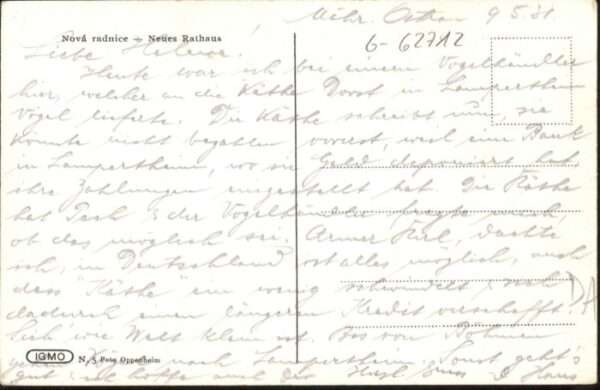 Nová radnice — Neues Rathaus
Mähr. Ostrau 9.5.31.
6-62712
Liebe Helene!
Heute war ich bei einem Vogelhändler
hier, welcher an die Käthe Dorst in Lampertheim
Vögel lieferte. Die Käthe schreibt nun, sie
könnte nicht bezahlen vorerst, weil eine Bank
in Lampertheim, wo sie Geld deponiert hat
ihre Zahlungen eingestellt hat. Die Käthe
hat Pech & der Vogelhändler fragte mich,
ob das möglich sei. Armer Kerl, dachte
ich, in Deutschland ist alles möglich, auch
dass "Käthe" ein wenig schwindelt & sich
dadurch einen längeren Kredit verschafft.
Sich wie Welt klein ist. Bis von Böhmen
nach Lampertheim. Sonst geht's
gut & ich hoffe auch dir. Hans
IGMO N. 5 Foto Oppenheim